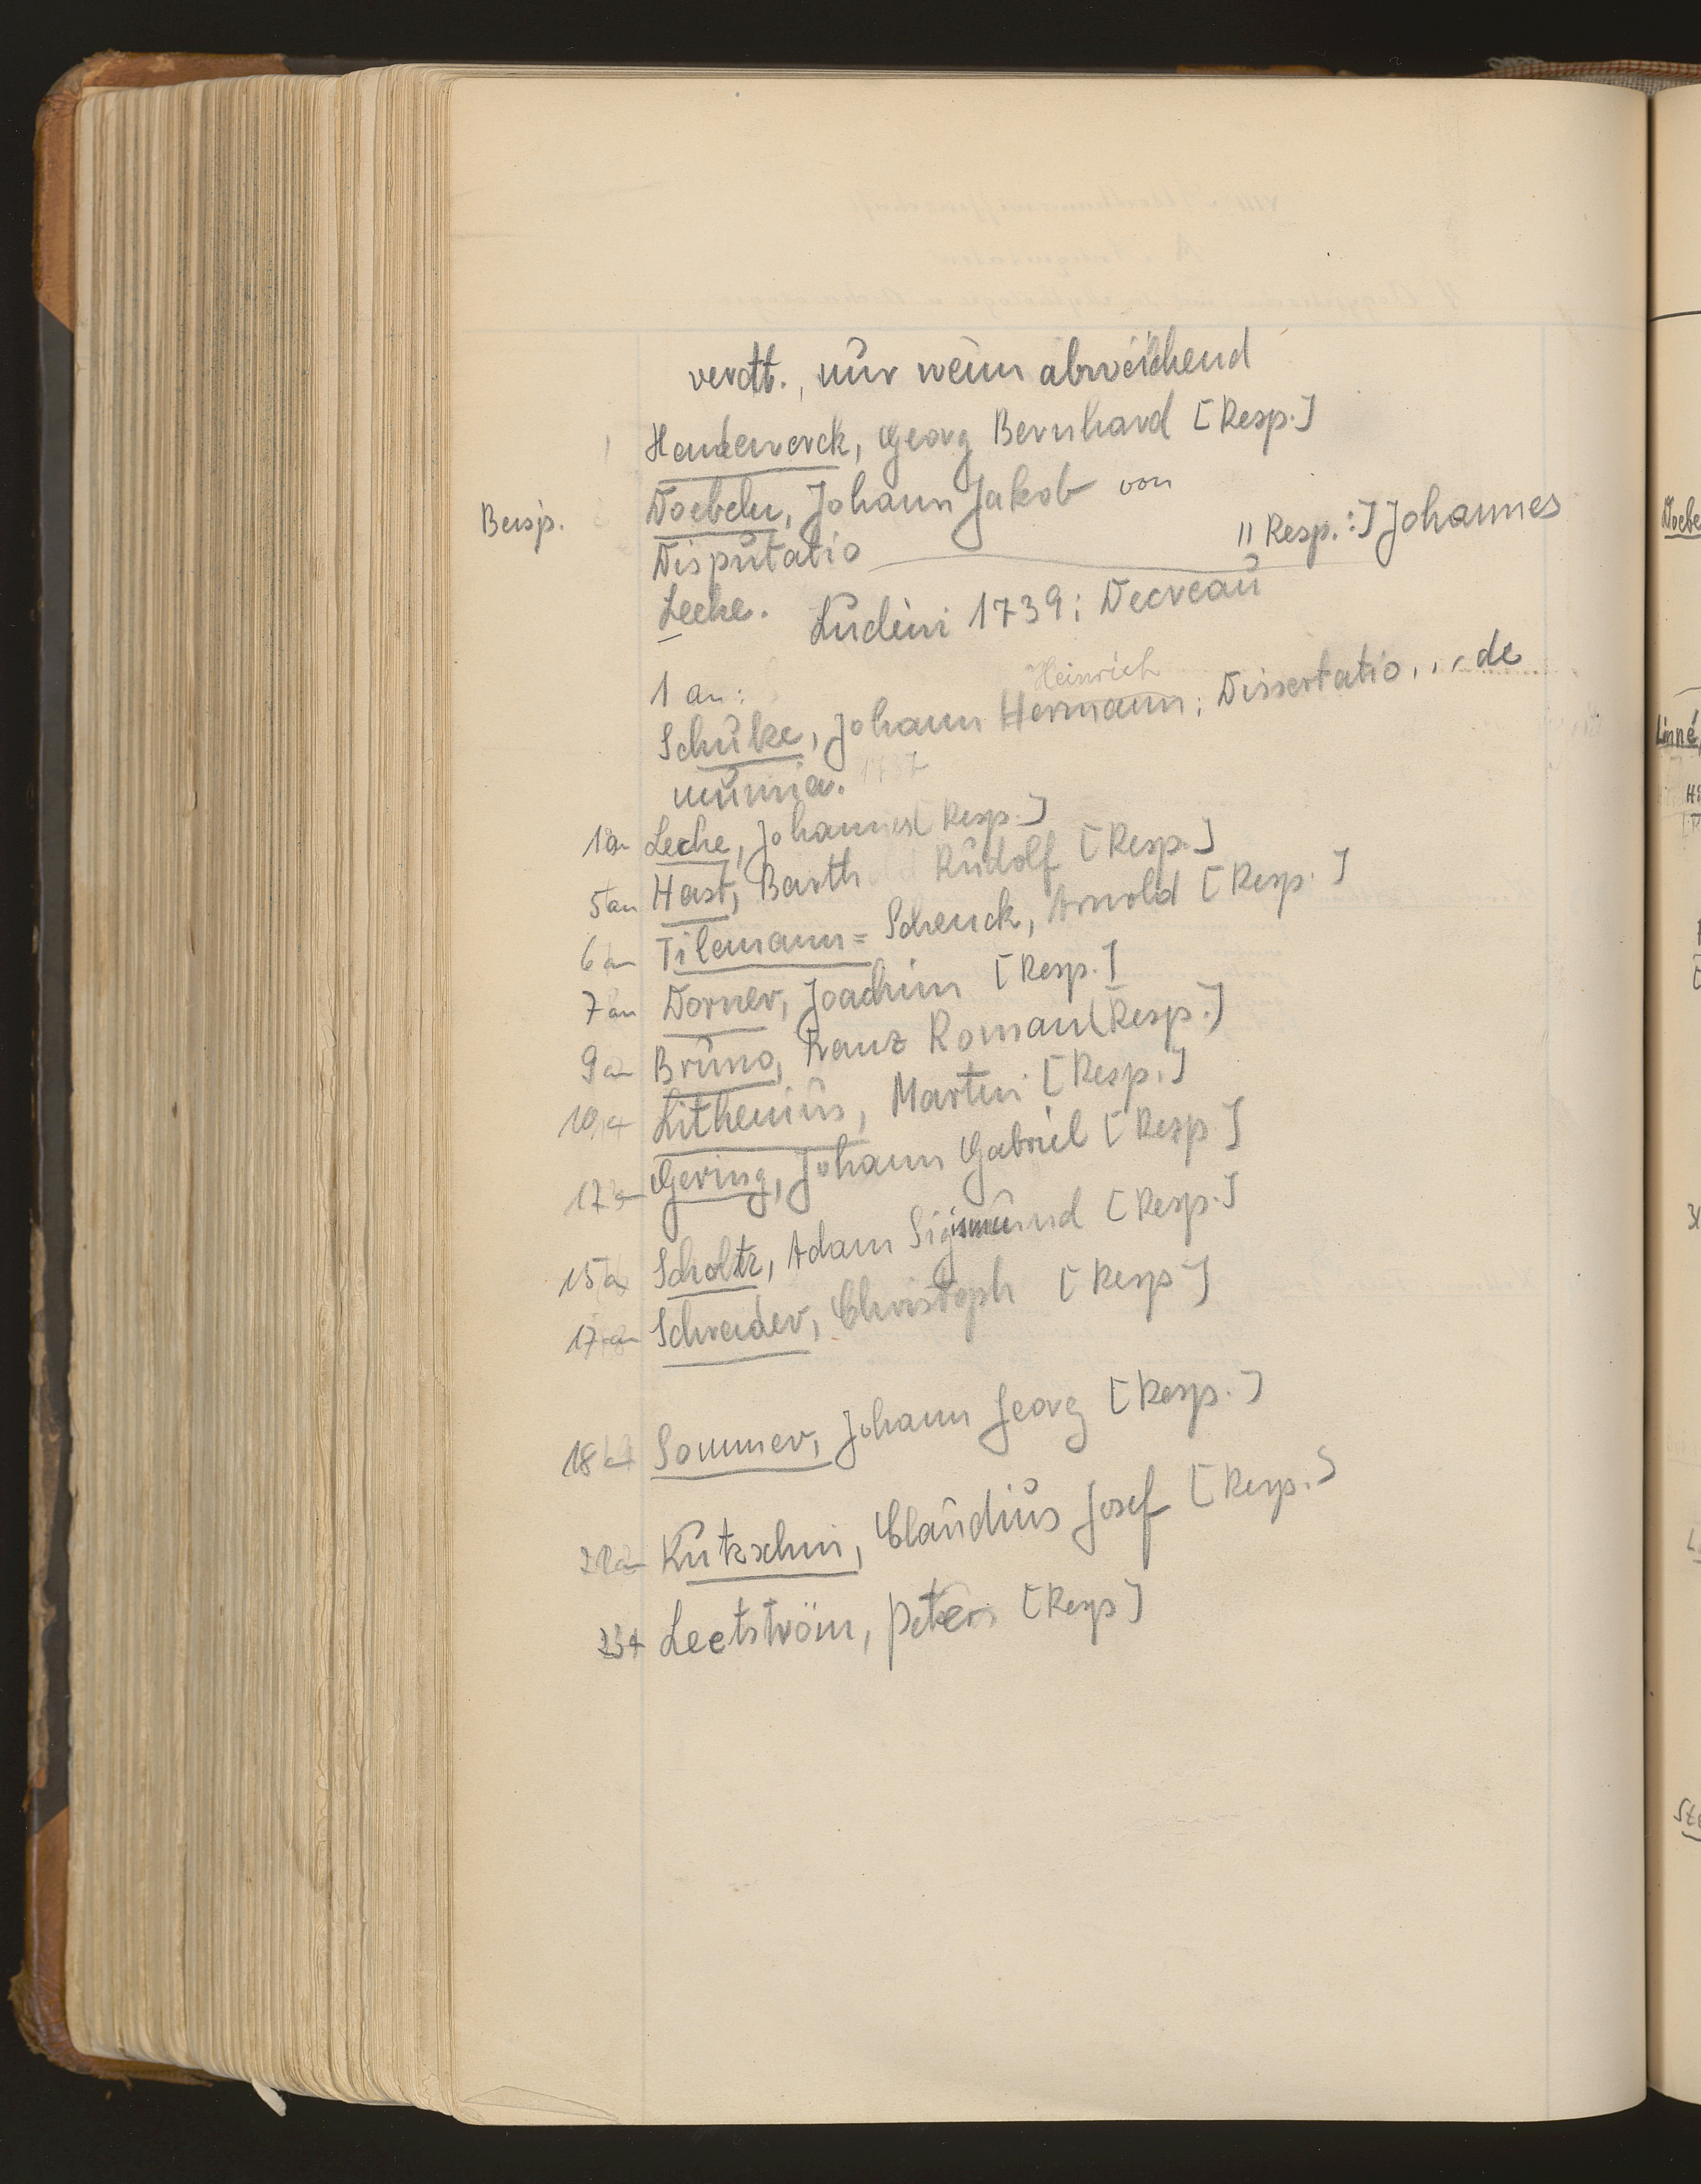 verdt., nur wenn abweichend
Hendewerck, Georg Bernhard [Resp.]
Beisp. Doebeln, Johann Jakob von
Disputatio " Resp.:] Johannes
Leche. Lndini 1739; Decreau
1 an: Heinrich
Schulze, Johann Hermann; Dissertatio... de
mumia. 1737
1an Leche, Johannes [Resp.]
5an Hast, Barthold Rudolf [Resp.]
6an Tilemann= Schenck, Arnold [Resp.]
7an Dorner, Joachim [Resp.]
9an Bruno, Franz Roman [Resp.]
10a Lithenius, Martin [Resp.]
12a Gering, Johann Gabriel [Resp]
15a Scholtz, Adam Sigismund [Resp.]
17an Schreider, Christoph [Resp]
18a Sommer, Johann Georg [Resp.]
Kutzschin, Claudius Josef [Resp.]
23a Leetström, Peter [Resp]
Doebe
Linné,